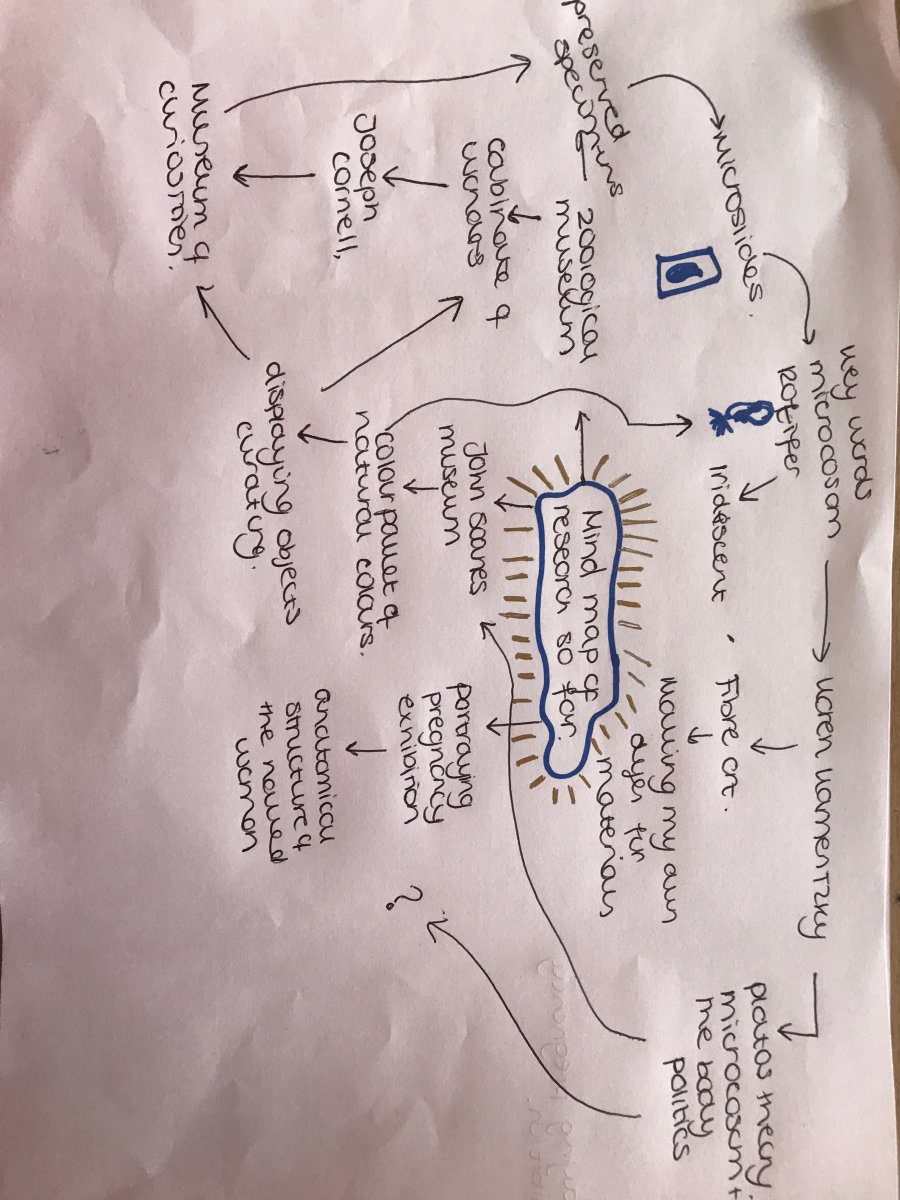 microslides.
key words
microcosom
Karen Kamentzky
platos theory
microcosm +
the body
politics
preserved
specimins
Rotifer
Iridescent
Fibre art.
Making my own
dyes for
materials
zoological
museum
Mind map of
research so far.
cabinate of
wonders
John soanes
museum
portraying
pregnancy
exhibition
?
Joseph
cornell,
colour pallet of
natural colours.
anatomical
structure of
the naked
woman
Museum of
displaying objects
curating.